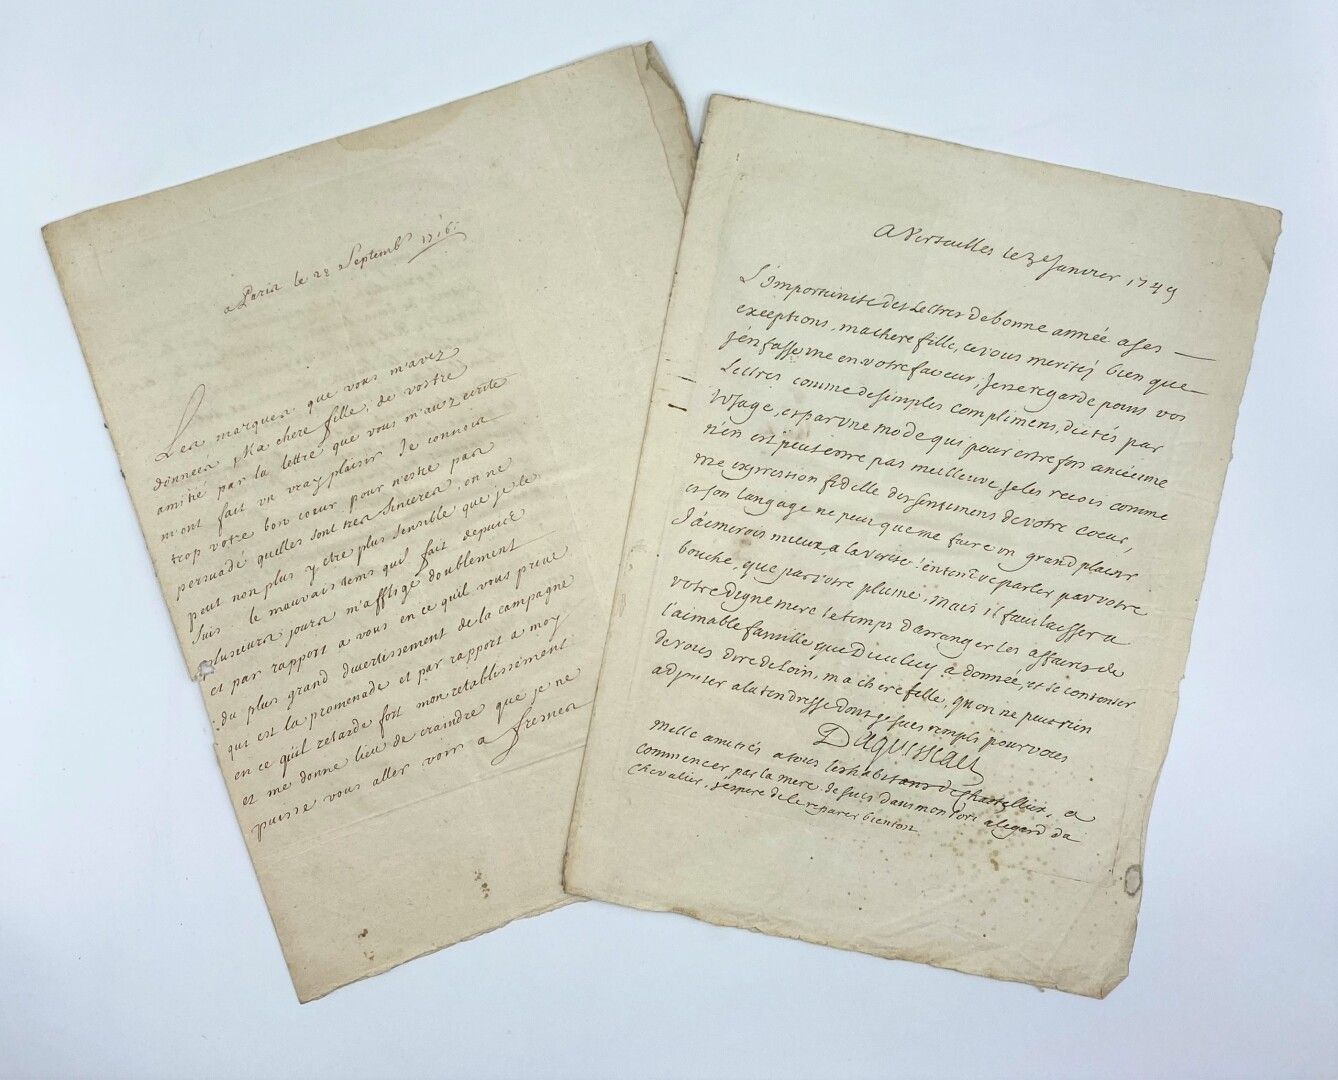 a Paris le 28 Septemb. 1716.
Les marques que vous m'avez
données Ma chere fille, de vostre
amitié par la lettre que vous m'avez écrite
m'ont fait un vray plaisir Je connois
trop votre bon coeur pour n'estre pas
persuadé quelles sont tres sinceres, on ne
peut non plus y etre plus sensible que je le
suis. le mauvais tems qu'il fait depuis
plusieurs jours m'afflige doublement
et par rapport a vous en ce quil vous prive
du plus grand divertissement de la campagne
qui est la promenade et par rapport a moy
en ce quil retarde fort mon retablissement
et me donne lieu de craindre que je ne
puisse vous aller voir a fresnes
A Versailles le 3e Janvier 1749
L'importunité des Lettres de bonne année a ses
exceptions, ma chere fille, et vous merités bien que
j'en fasse une en votre faveur, je ne regarde point vos
Lettres comme de simples complimens, dictés par
usage, et par une mode qui pour estre fort ancienne
n'en est peutestre pas meilleure je les recois comme
une expression fidelle des sentimens de votre coeur,
et son langage ne peut que me faire un grand plaisir
J'aimerois mieux, a la verité l'entendre parler par votre
bouche, que par votre plume, mais il faut laisser a
votre digne mere le temps d'arranger les affaires de
l'aimable famille que Dieu luy a donnée, et se contenter
de vous dire de loin, ma chere fille, qu'on ne peut rien
adjouter a la tendresse dont je suis rempli pour vous
Daguesseau
Mille amitiés a tous les habitans de Chastellux, a
commencer par la mere. Je suis dans mon tort a l'egard du
Chevalier, j'espere de le reparer bientost